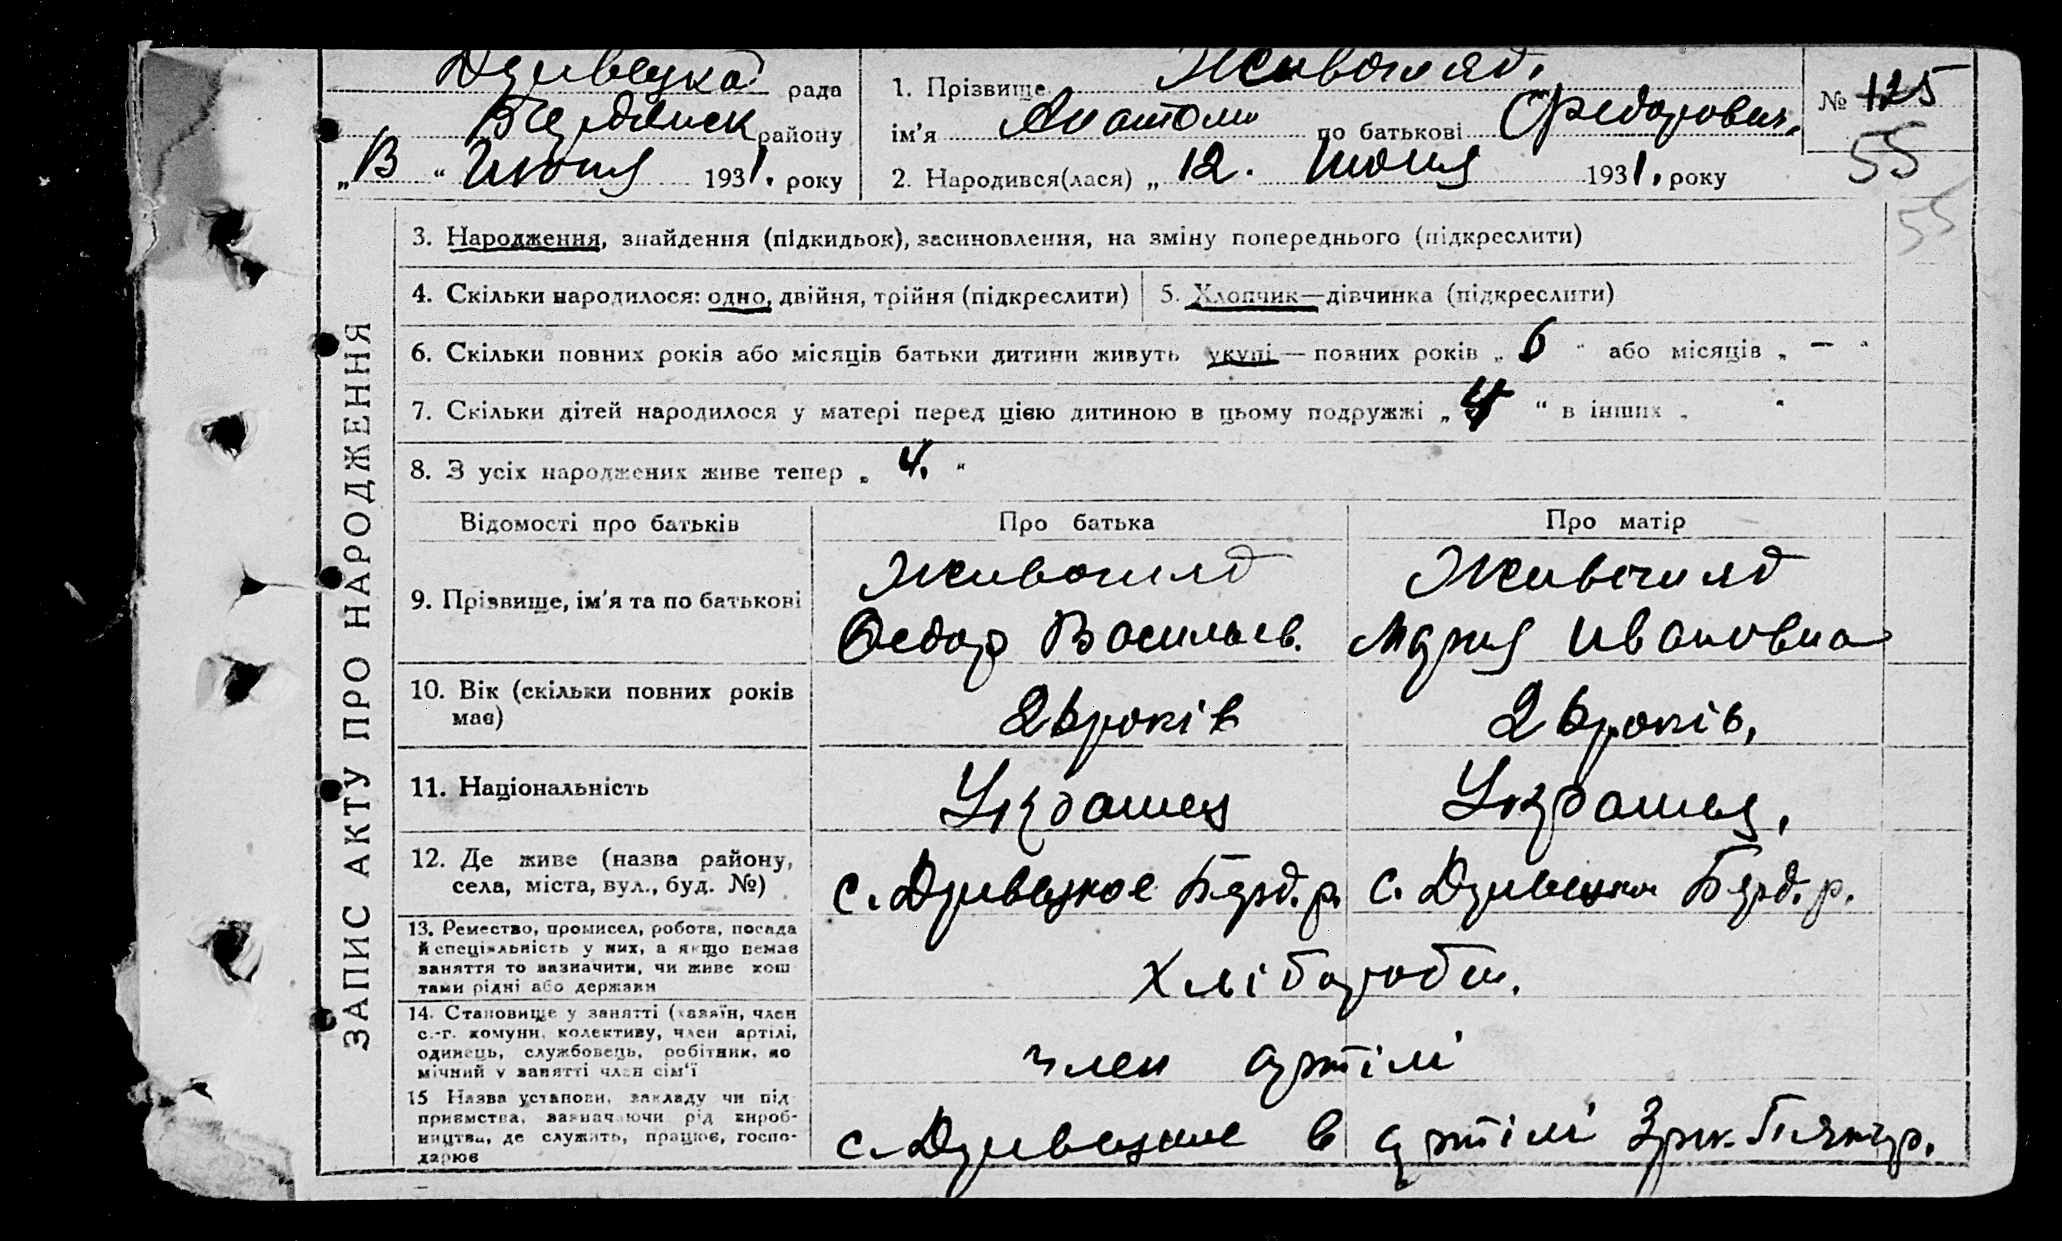 Дзивецка рада
Бердянск району
„13“ Июня 1931. року
1. Прізвище Живогляд.
ім'я Анатоли по батькові Федорович.
2. Народився(лася) „12. Июня 1931. року
№ 125
55
55
ЗАПИС АКТУ ПРО НАРОДЖЕННЯ
3. Народження, знайдення (підкидьок), засиновлення, на зміну попереднього (підкреслити)
4. Скільки народилося: одно, двійня, трійня (підкреслити)
5. Хлопчик—дівчинка (підкреслити)
6. Скільки повних років або місяців батьки дитини живуть укупі — повних років „6“ або місяців „—“
7. Скільки дітей народилося у матері перед цією дитиною в цьому подружжі „4“ в інших „ “
8. З усіх народжених живе тепер „4.“
Відомості про батьків Про батька Про матір
9. Прізвище, ім'я та по батькові
Живогляд Живогляд
Федор Васильев. Мария Ивановна
10. Вік (скільки повних років
має)
26 років 26 років,
11. Національність
Украинец Украинец,
12. Де живе (назва району,
села, міста, вул., буд. №)
с. Дзивецкое Берд. р. с. Дзивецка Берд. р.
13. Ремество, промисел, робота, посада
й спеціяльність у них, а якщо немає
заняття то зазначити, чи живе кош
тами рідні або держави
Хлібороби.
14. Становище у занятті (хазяїн, член
с.-г. комуни, колективу, член артілі,
одинець, службовець, робітник, по
мічний у занятті член сім'ї
член артілі
15 Назва установи, закладу чи під
приємства, зазначаючи рід вироб-
ництва, де служить, працює, госпо-
дарює
с. Дзивецкое в артілі